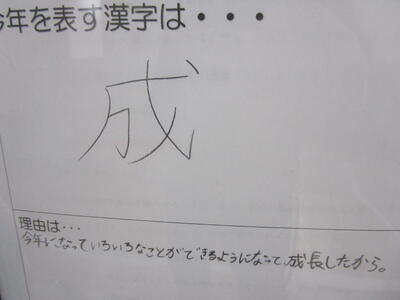 今年を表す漢字は・・・
成
理由は・・・
今年になっていろいろなことができるようになって、成長したから。